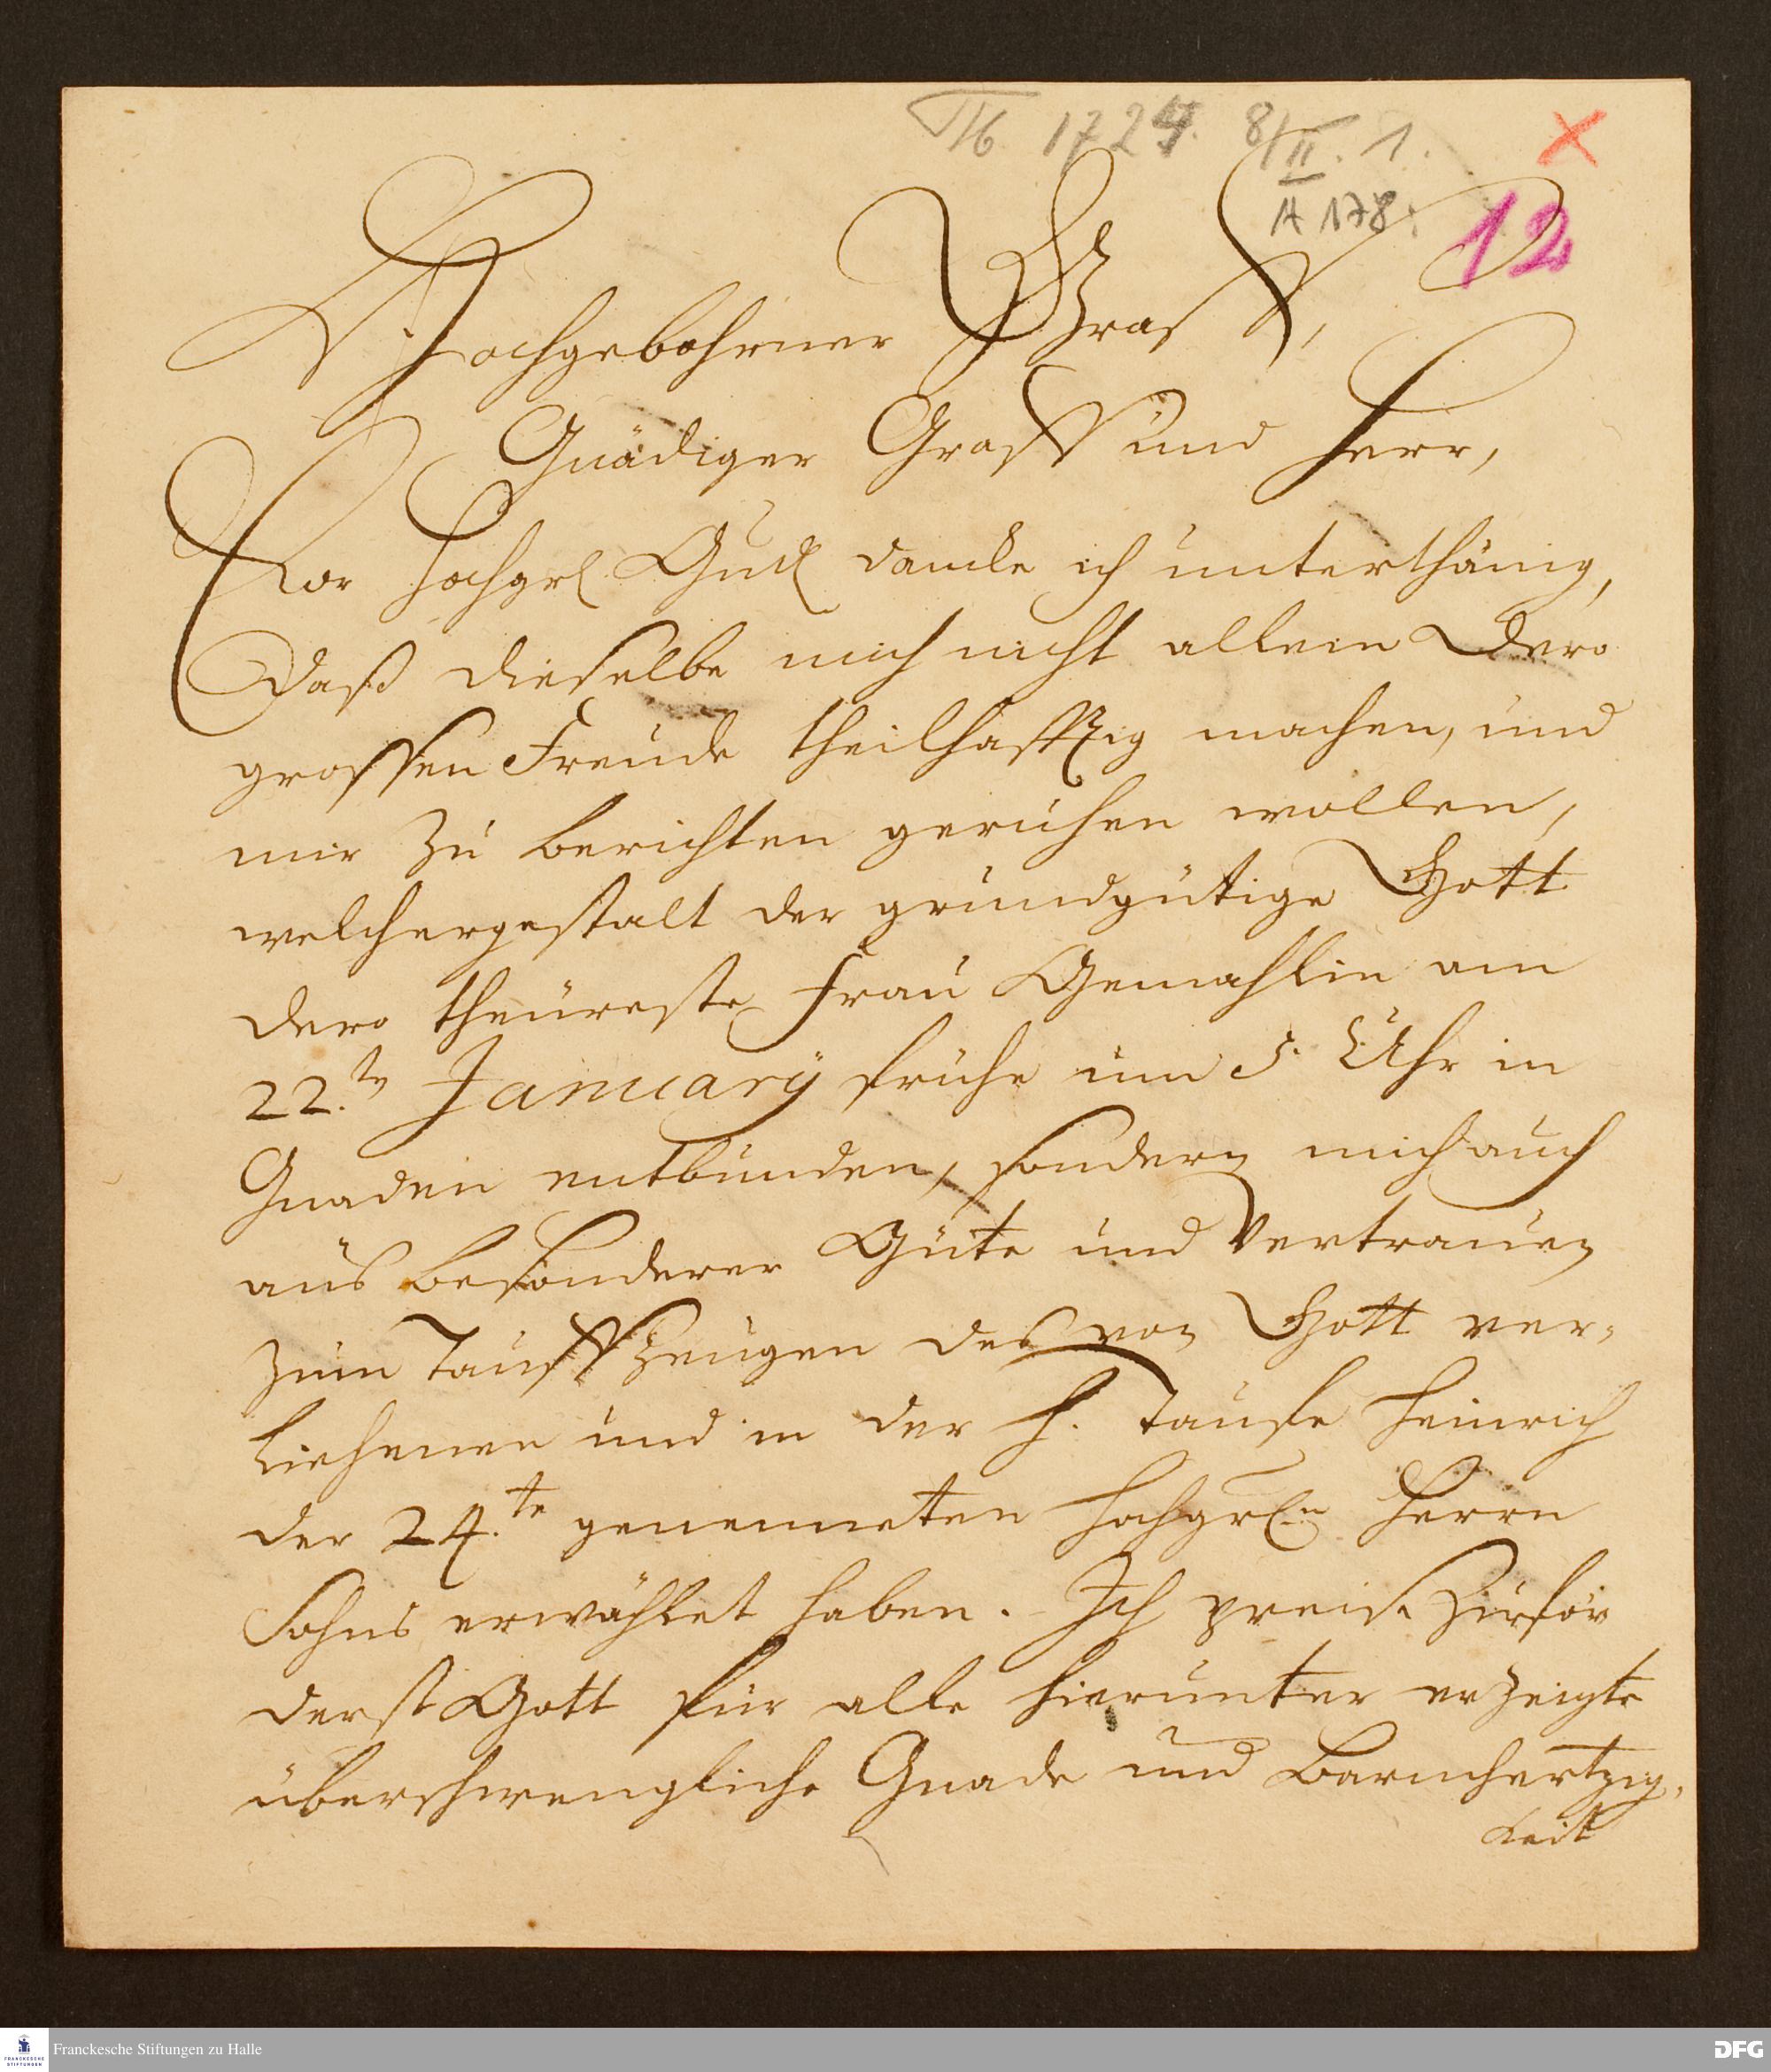 1724. 8/II. 1.
A 178.
12
Hochgebohrner Graff,
Gnädiger Graff und Herr,
Ewr Hochgrl Gnd dancke ich unterthänig,
Daß dieselbe mich nicht allein Dero
grossen Freude theilhafftig machen, und
mir zu berichten geruhen wollen,
welchergestalt der grundgütige Gott
dero theureste Frau Gemahlin am
22.ten January frühe um 5. Uhr in
Gnaden entbunden, sondern mich auch
aus besonderer Güte und Vertrauen
zum Tauffzeugen des von Gott ver-
liehenen und in der H. Taufe Heinrich
der 24.te genenneten Hochgrln Herrn
Sohns erwählet haben. Ich preise zuför
derst Gott für alle hierunter erzeigte
überschwengliche Gnade und Barmhertzig-
keit
Franckesche Stiftungen zu Halle
DFG